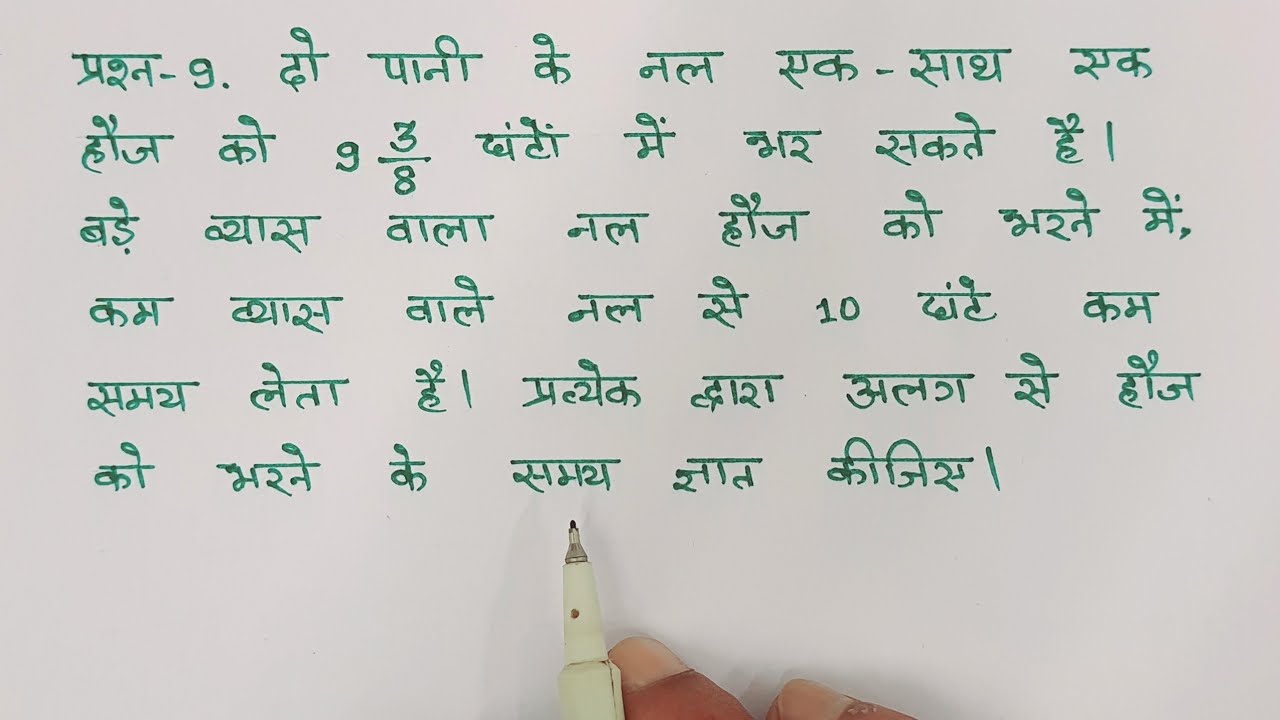 प्रश्न-9. दो पानी के नल एक-साथ एक
हौज को 9 3/8 घंटों में भर सकते है।
बड़े व्यास वाला नल हौज को भरने में,
कम व्यास वाले नल से 10 घंटे कम
समय लेता है। प्रत्येक द्वारा अलग से हौज
को भरने के समय ज्ञात कीजिए।